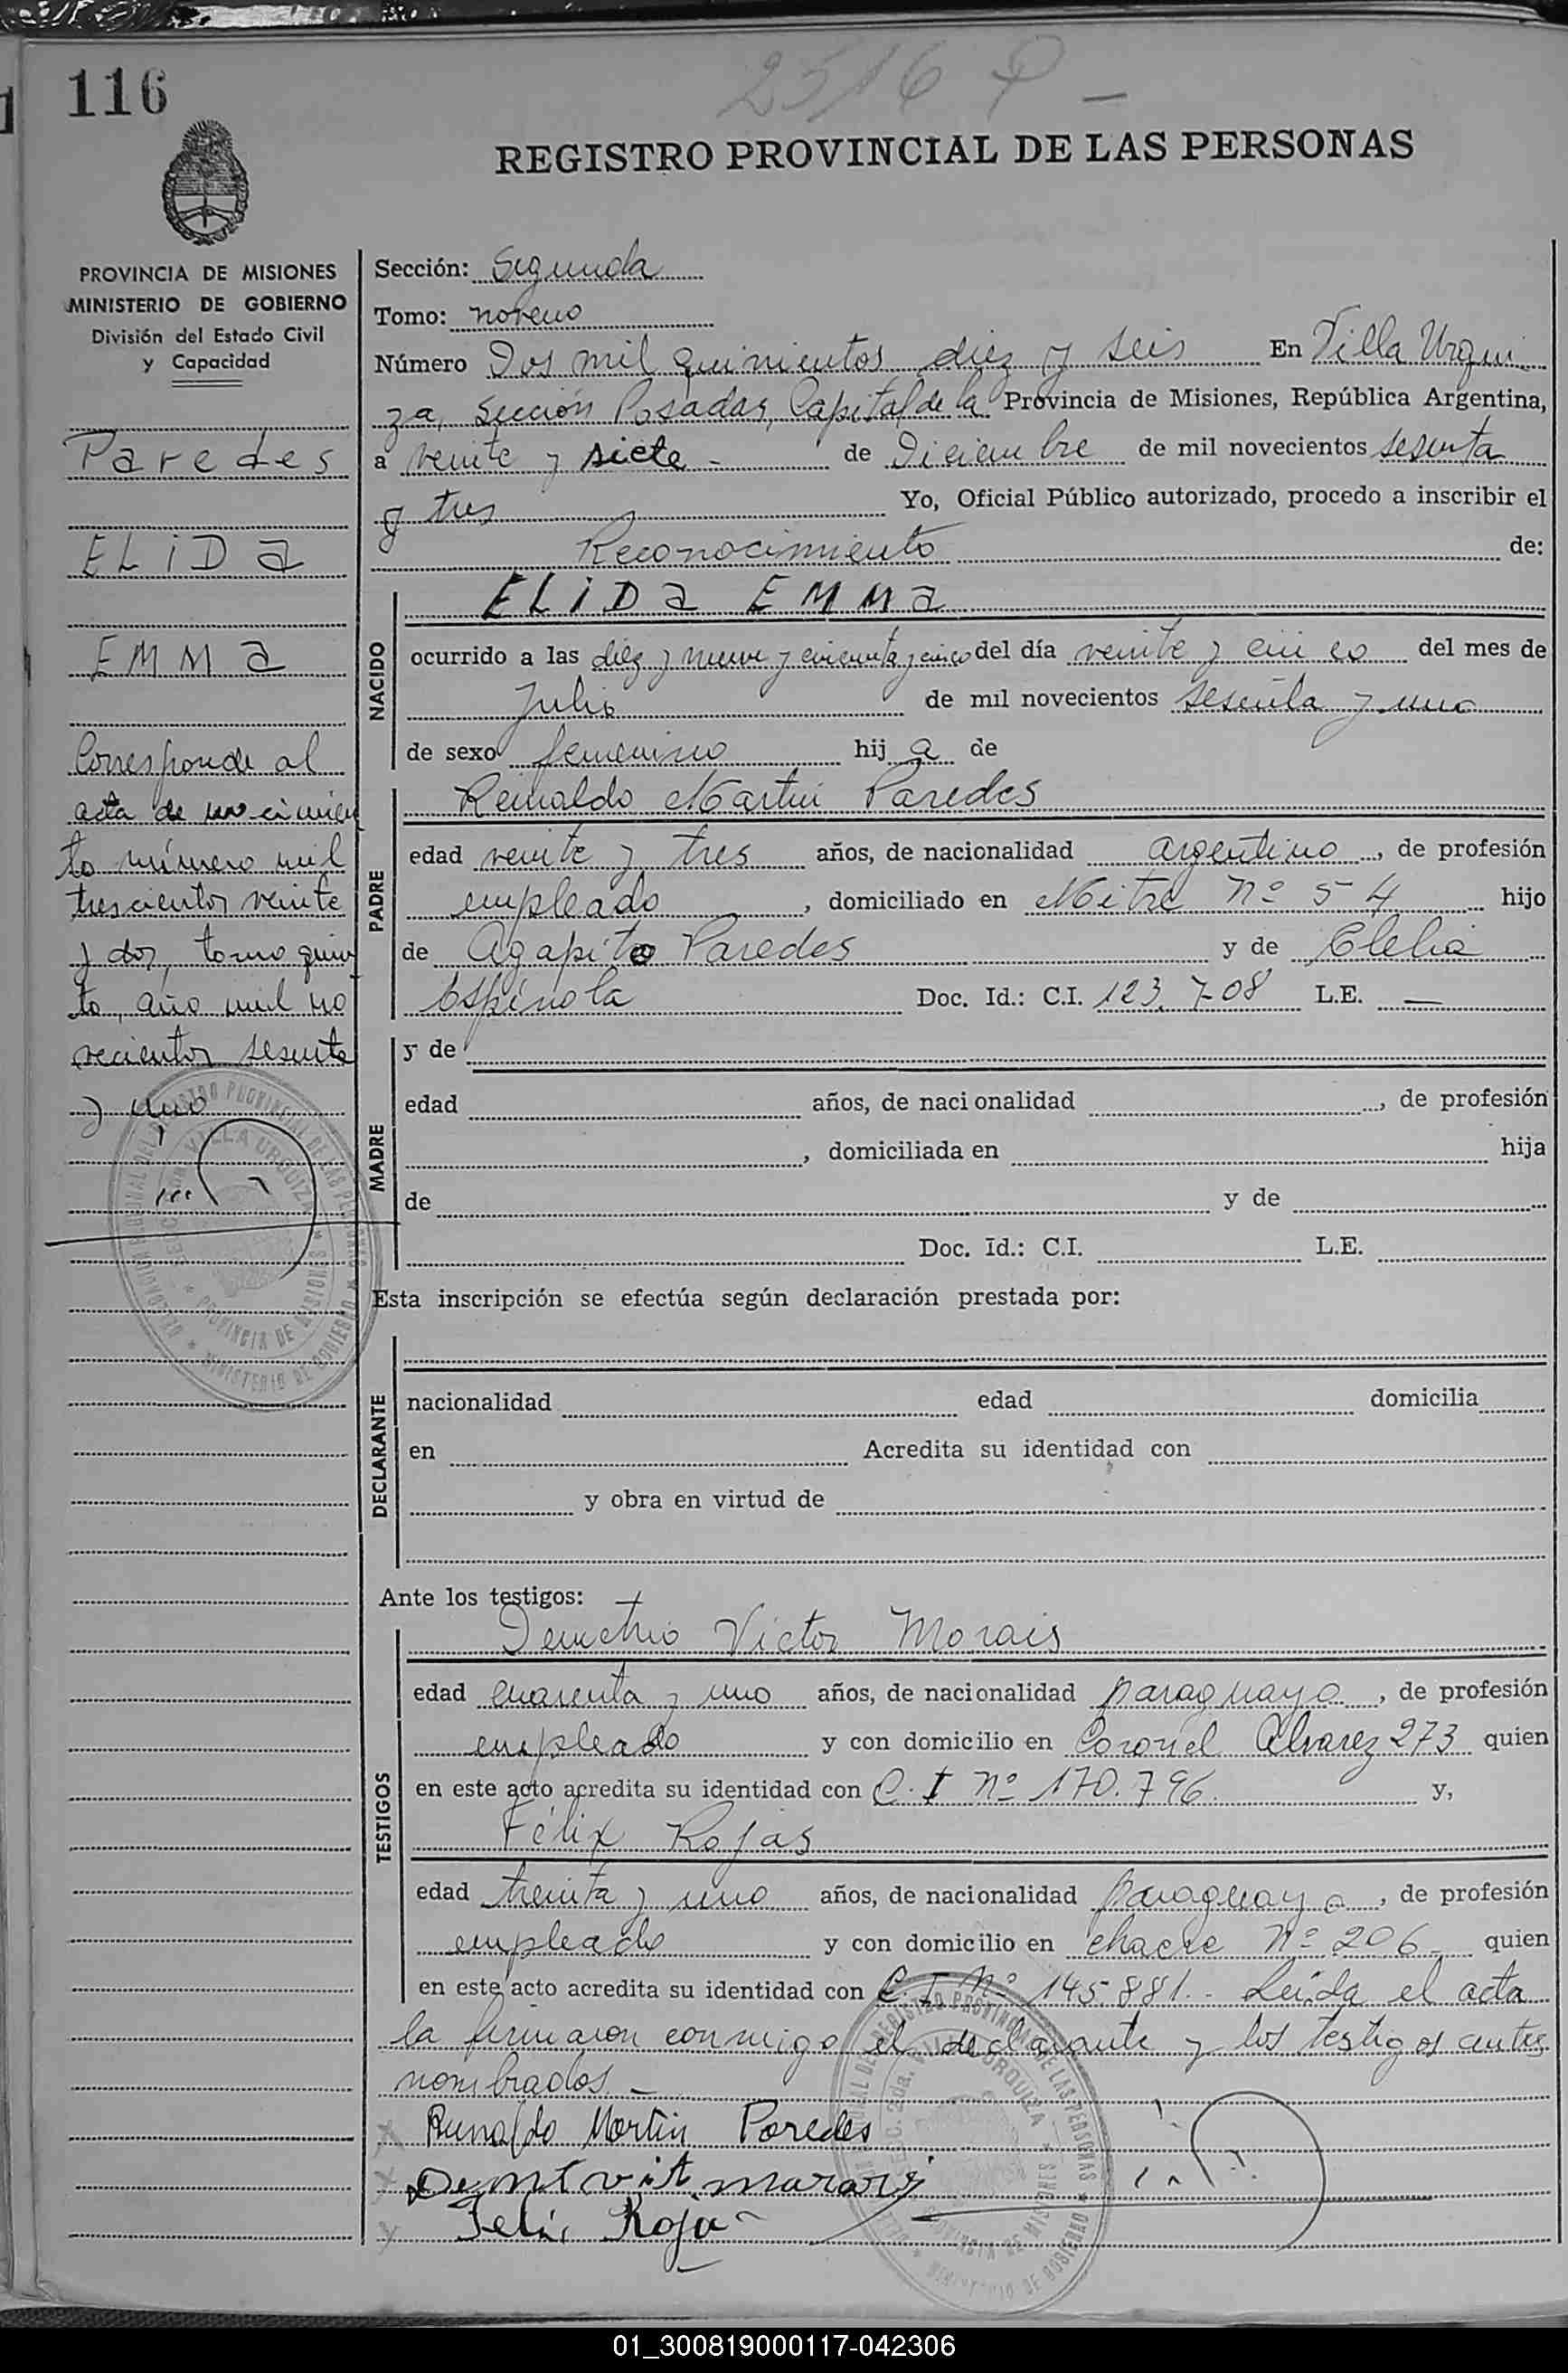 116
2516 P –
REGISTRO PROVINCIAL DE LAS PERSONAS
PROVINCIA DE MISIONES
MINISTERIO DE GOBIERNO
División del Estado Civil
y Capacidad
Paredes
ELiDa
EMMa
Corresponde al
acta de nacimien
to número mil
trescientos veinte
y dos, tomo quin
to, año mil no
vecientos sesenta
y uno
Sección: Segunda
Tomo: noveno
Número Dos mil quinientos diez y seis En Villa Urqui
za, Sección Posadas, Capital de la Provincia de Misiones, República Argentina,
a veinte y siete - de Diciembre de mil novecientos sesenta
y tres Yo, Oficial Público autorizado, procedo a inscribir el
Reconocimiento de:
NACIDO
ELiDa EMMa
ocurrido a las diez y nueve y cincuenta y cinco del día veinte y cinco del mes de
Julio de mil novecientos sesenta y uno
de sexo femenino hij a de
PADRE
Reinaldo Martin Paredes
edad veinte y tres años, de nacionalidad argentino, de profesión
empleado, domiciliado en Mitre Nº 54 hijo
de Agapito Paredes y de Clelia
Espínola Doc. Id.: C.I. 123.708 L.E. —
MADRE
y de
edad años, de nacionalidad , de profesión
, domiciliada en hija
de y de
Doc. Id.: C.I. L.E.
Esta inscripción se efectúa según declaración prestada por:
DECLARANTE
nacionalidad edad domicilia
en Acredita su identidad con
y obra en virtud de
Ante los testigos:
TESTIGOS
Demetrio Victor Morais
edad cuarenta y uno años, de nacionalidad paraguayo, de profesión
empleado y con domicilio en Coronel Alvarez 273 quien
en este acto acredita su identidad con C.I Nº 170.796. y,
Félix Rojas
edad treinta y uno años, de nacionalidad paraguayo, de profesión
empleado y con domicilio en chacra Nº 206- quien
en este acto acredita su identidad con C.I Nº 145.881.- Leída el acta
la firmaron conmigo el declarante y los testigos antes
nombrados.-
Reinaldo Martin Paredes
Felix Roja
01_300819000117-042306